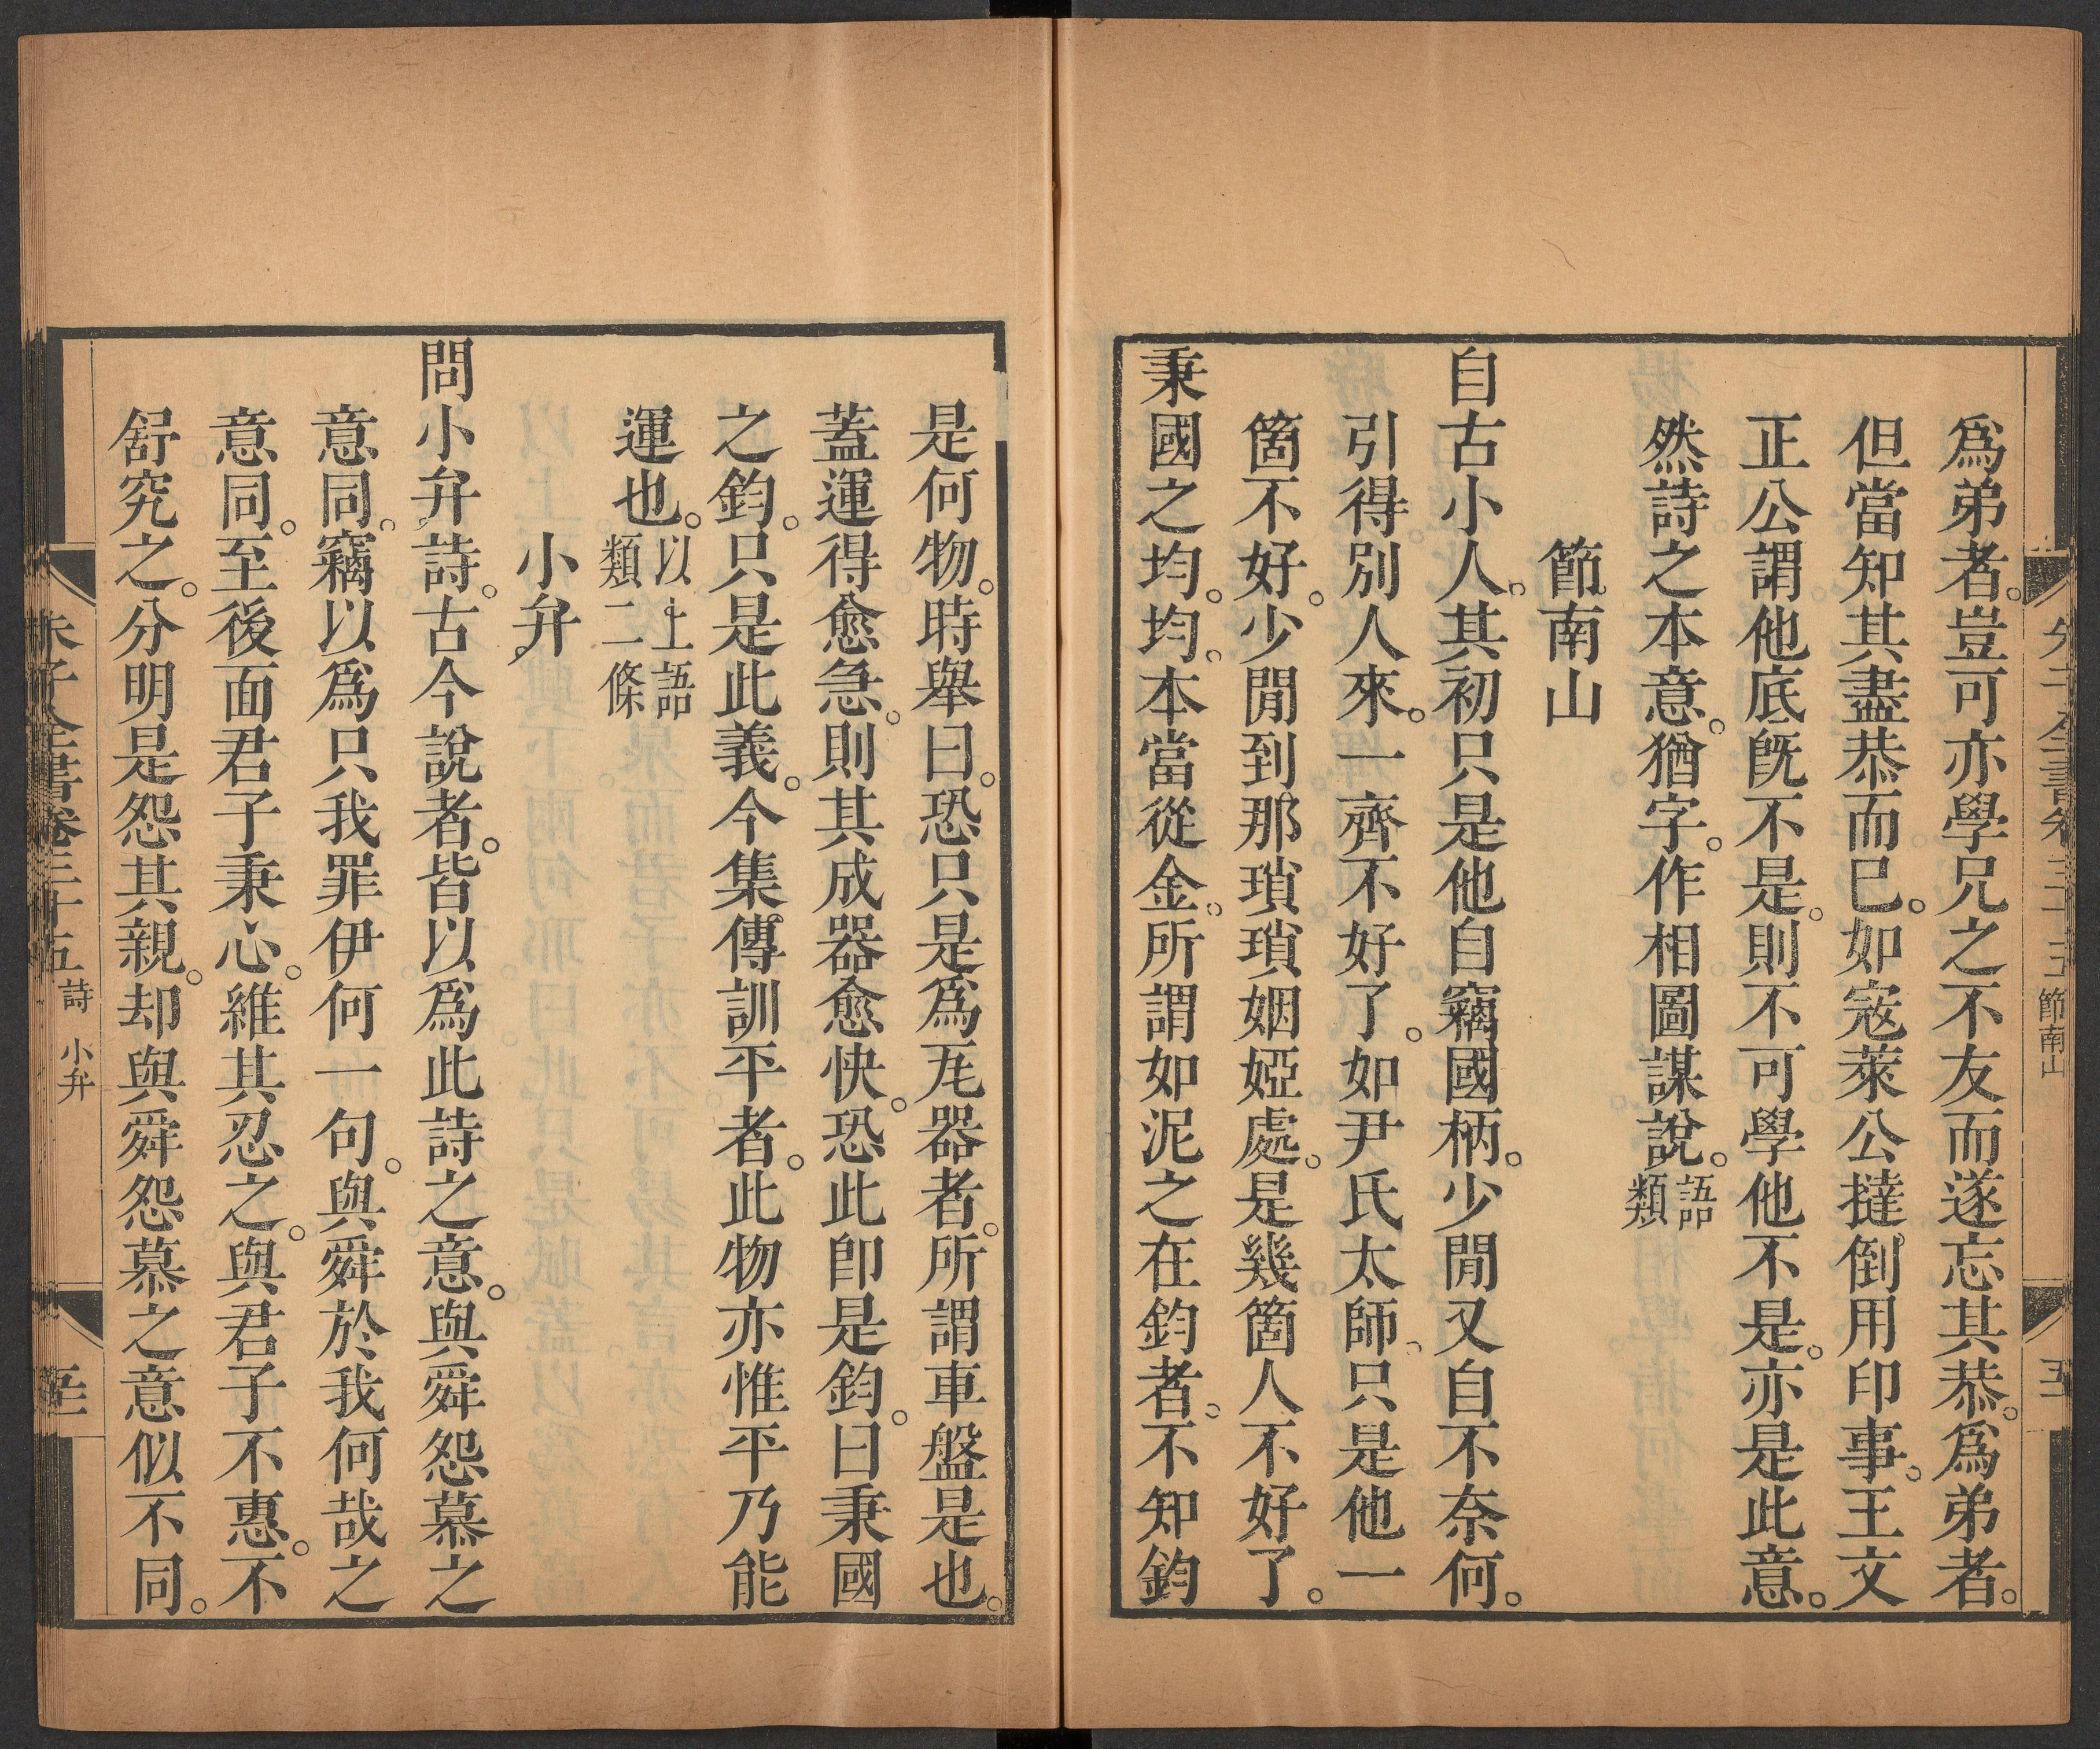 爲弟者。豈可亦學兄之不友而遂忘其恭。爲弟者。
但當知其盡恭而已。如寇萊公撻倒用印事。王文
正公謂他底旣不是。則不可學他不是。亦是此意。
然詩之本意。猶字。作相圖謀說。語類
節南山
自古小人。其初只是他自竊國柄。少閒又自不奈何。
引得別人來。一齊不好了。如尹氏太師。只是他一
箇不好。少閒到那瑣瑣姻婭處。是幾箇人不好了。
秉國之均。均。本當從金。所謂如泥之在鈞者。不知鈞
是何物。時舉曰。恐只是爲瓦器者。所謂車盤是也。
蓋運得愈急。則其成器愈快。恐此卽是鈞。曰秉國
之鈞。只是此義。今集傳訓平者。此物亦惟平乃能
運也。以上語類二條
小弁
問小弁詩。古今說者。皆以爲此詩之意。與舜怨慕之
意同。竊以爲只我罪伊何一句。與舜於我何哉之
意同。至後面君子秉心。維其忍之。與君子不惠。不
舒究之。分明是怨其親。却與舜怨慕之意似不同。
朱子全書卷三十五 詩 小弁